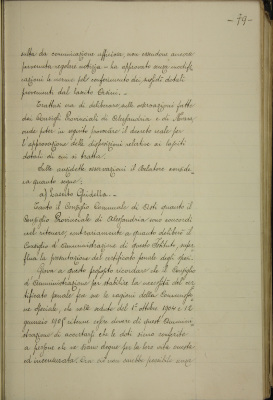 - 79 -
sulta da comunicazione ufficiosa, non essendone ancora
pervenuta regolare notizia - ha approvato senza modifi-
cazioni le norme pel conferimento dei sussidi dotali
provenienti dal lascito
Trattasi ora di deliberare sulle osservazioni fatte
dai Consigli Provinciali di Alessandria e di Novara,
onde poter in seguito promuovere il decreto reale per
l'approvazione delle disposizioni relative ai lasciti
dotali di cui si tratta.
Sulle anzidette osservazioni il Relatore consi-
ra quanto segue:
a) Lascito
Tanto il Consiglio Comunale di quanto il
Consiglio Provinciale di Alessandria sono concordi
nel ritenere, contrariamente a quanto deliberò il
Consiglio d'Amministrazione di questo Istituto, super-
flua la presentazione del certificato penale degli sposi.
Giova a questo proposito ricordare che il Consiglio
d'Amministrazione per stabilire la necessità del cer-
tificato penale fra
speciale, che nelle sedute del 1° ottobre 1904 e 12
gennaio 1905 ritenne esser dovere di questa Ammini-
strazione di accertarsi che le doti siano conferite
a persone che ne siano degne per la loro vita onesta
ed incensurata. Ora ciò non sarebbe possibile senza